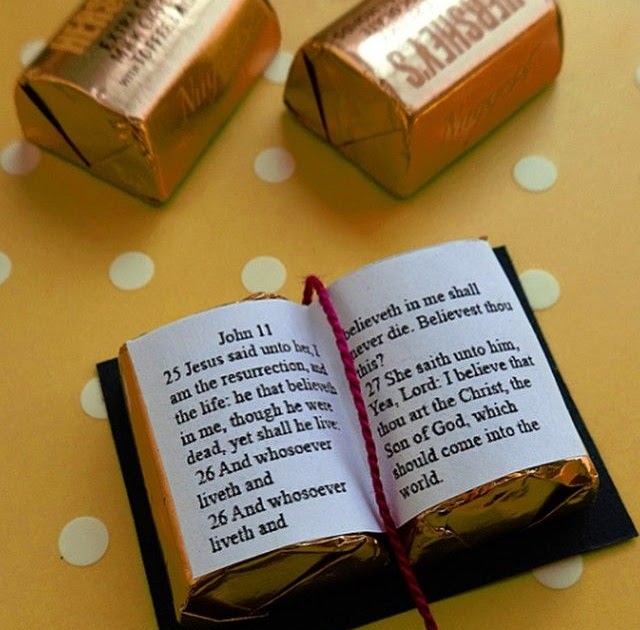 HERSHEY'S
EXTRA CREAMY
MILK CHOCOLATE
WITH TOFFEE &
Nuggets
HERSHEY'S
Nuggets
John 11
25 Jesus said unto her, I
am the resurrection, and
the life: he that believeth
in me, though he were
dead, yet shall he live:
26 And whosoever
liveth and
26 And whosoever
liveth and
believeth in me shall
never die. Believest thou
this?
27 She saith unto him,
Yea, Lord: I believe that
thou art the Christ, the
Son of God, which
should come into the
world.